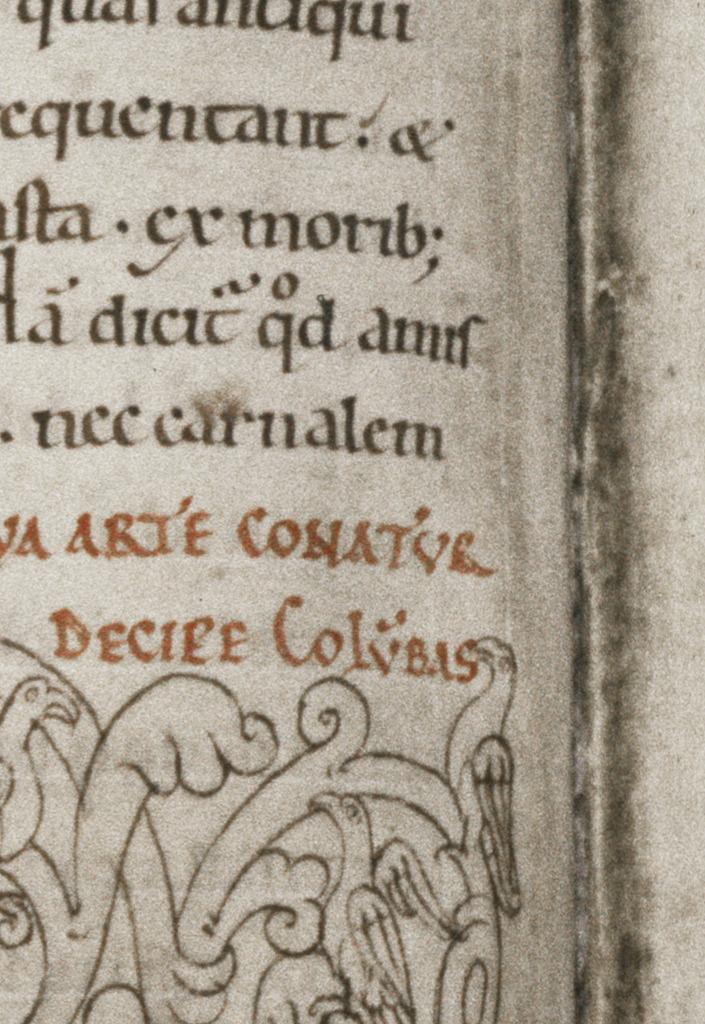 quasi antiqui
equentant: &
usta · ex morib;
lā dicit̄ qd̊ amis
. nec carnalem
VA ARTE CONATVR
DECIPE COLVBAS